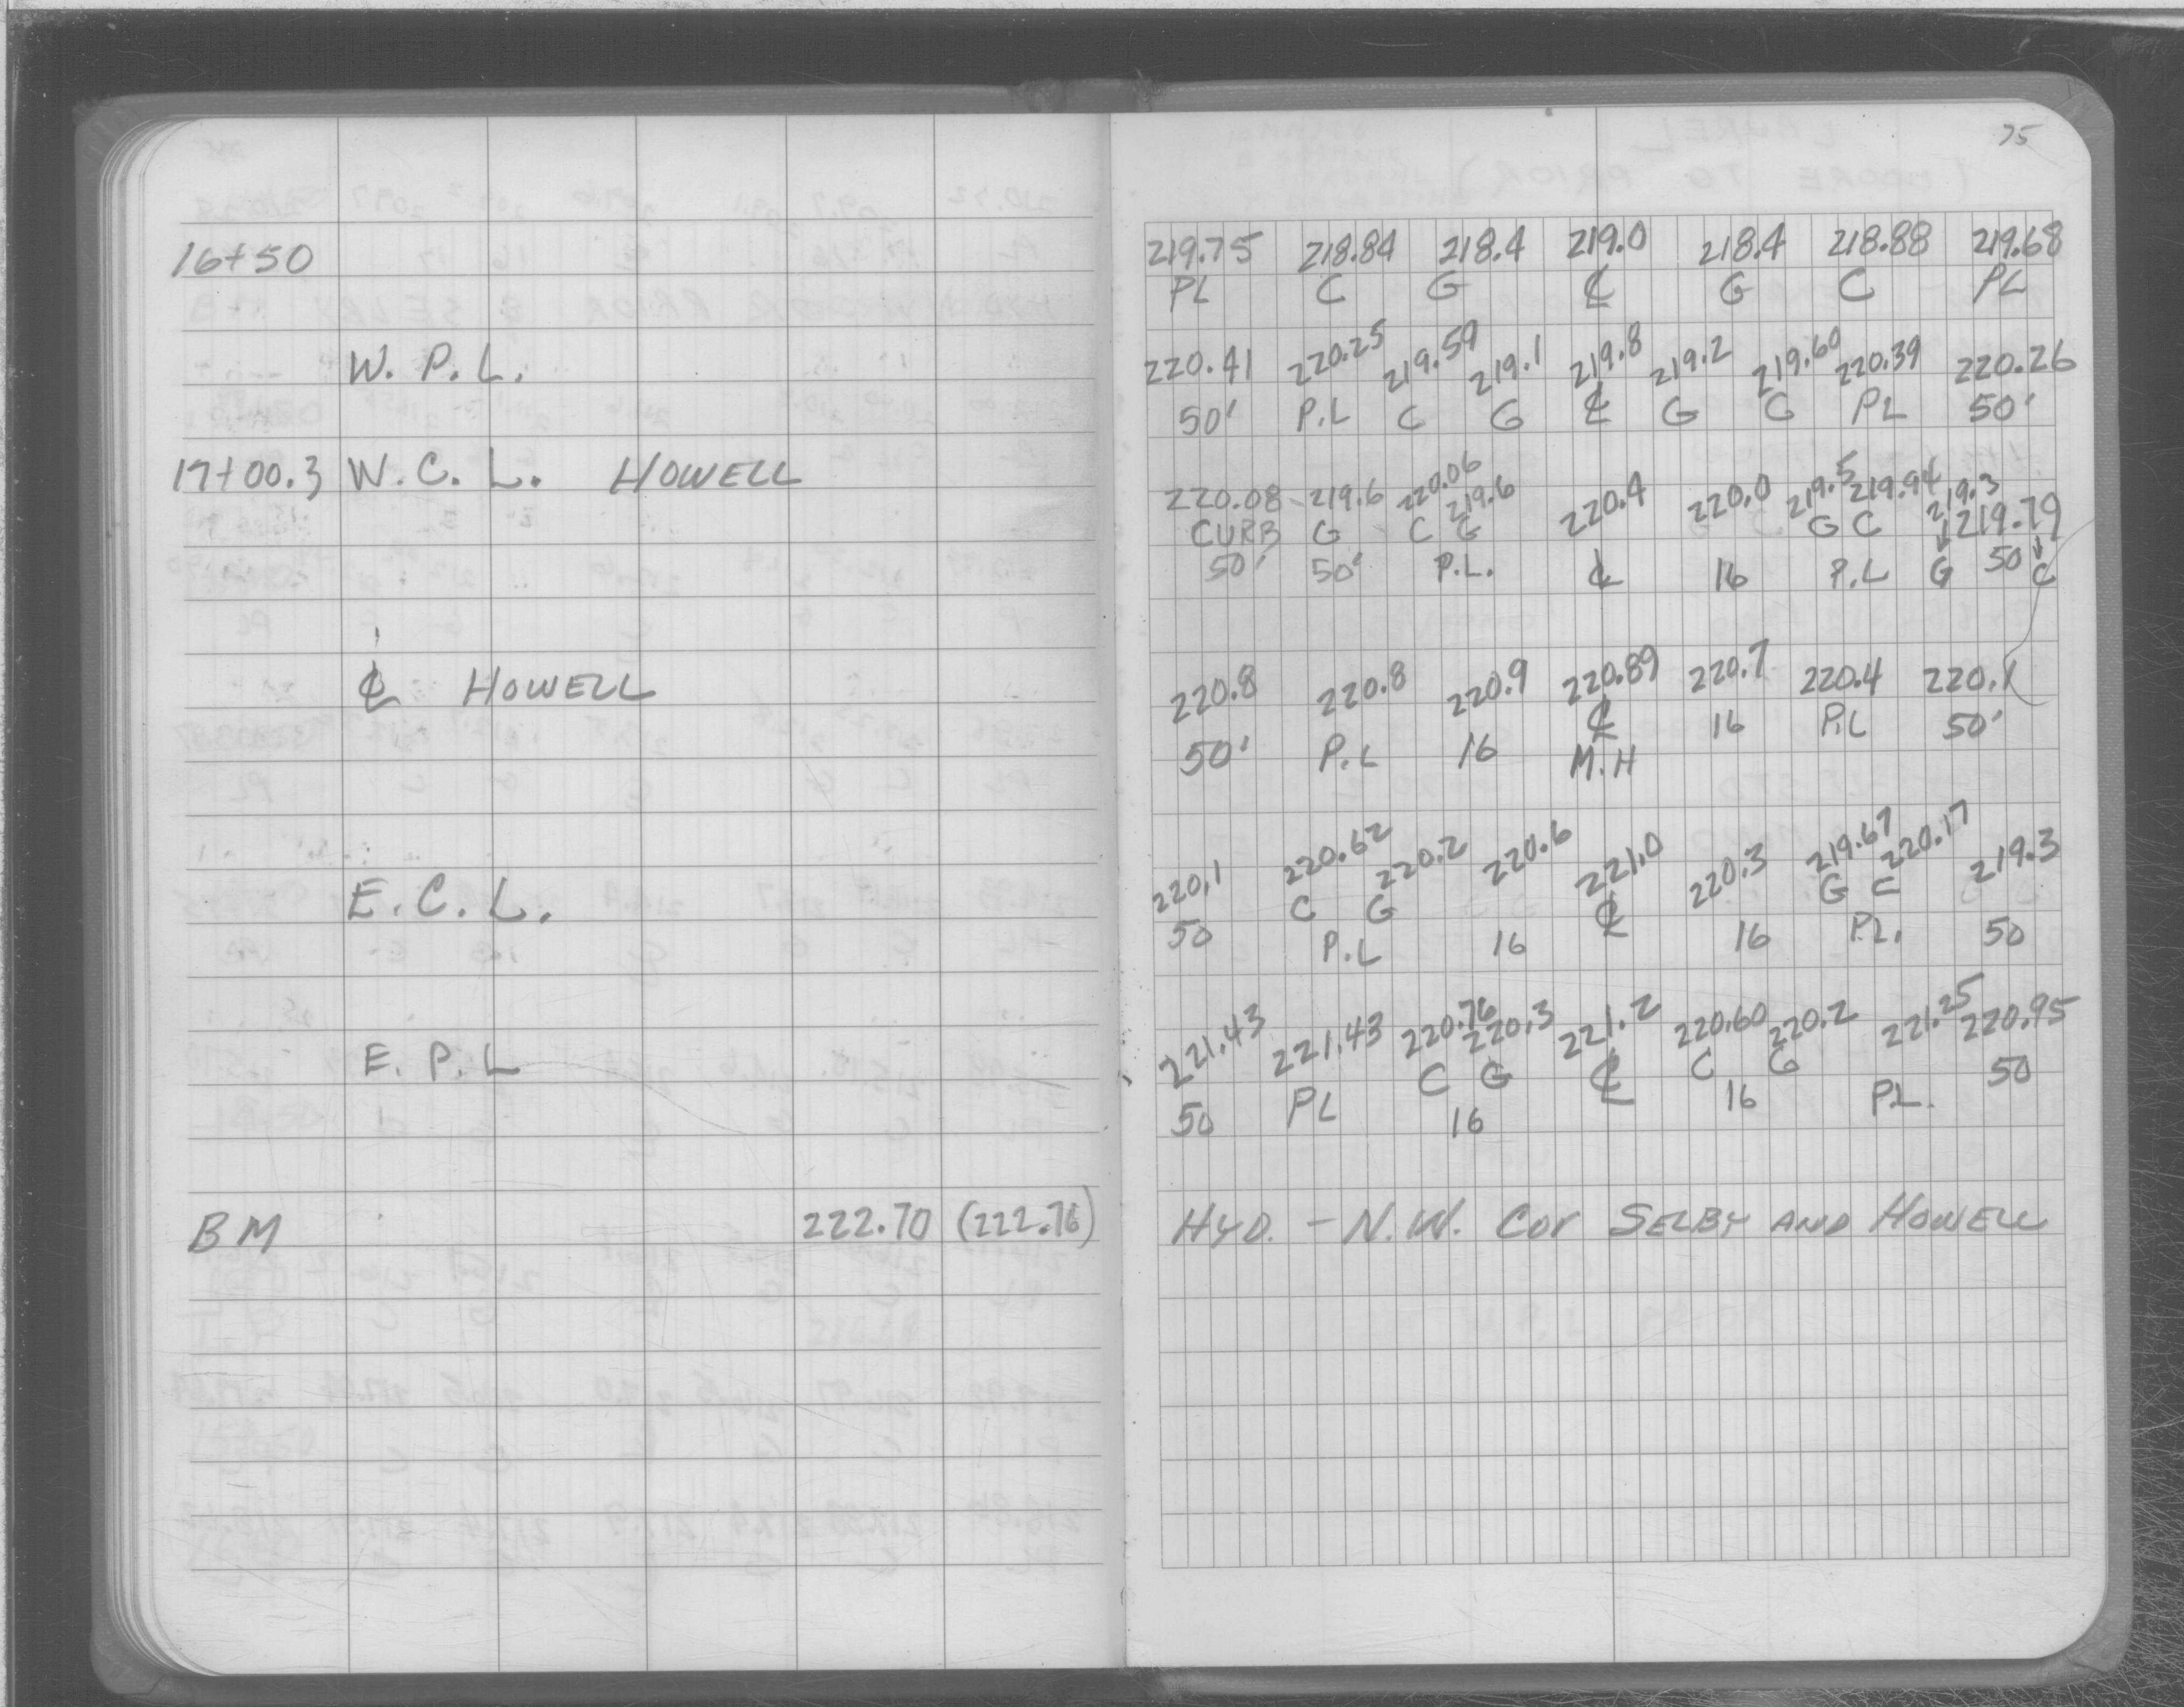 75
16+50 219.75 218.84 218.4 219.0 218.4 218.88 219.68
PL C G ℄ G C PL
W. P. L. 220.41 220.25 219.59 219.1 219.8 219.2 219.60 220.39 220.26
50' P.L C G ℄ G C PL 50'
17+00.3 W. C. L. HOWELL 220.08 219.6 220.06 219.6 220.4 220.0 219.5 219.94 219.3 219.79
CURB G C G G C
50' 50' P.L. ℄ 16 P.L G 50 C
℄ HOWELL 220.8 220.8 220.9 220.89 220.7 220.4 220.1
50' P.L 16 ℄ 16 P.L 50'
M.H
E. C. L. 220.1 220.62 220.2 220.6 221.0 220.3 219.67 220.17 219.3
C G ℄ G C
50 P.L 16 16 P.L. 50
E. P. L 221.43 221.43 220.76 220.3 221.2 220.60 220.2 221.25 220.95
C G ℄ C G 50
50 PL 16 16 P.L.
BM 222.70 (222.76) HYD. - N.W. Cor SELBY AND HOWELL